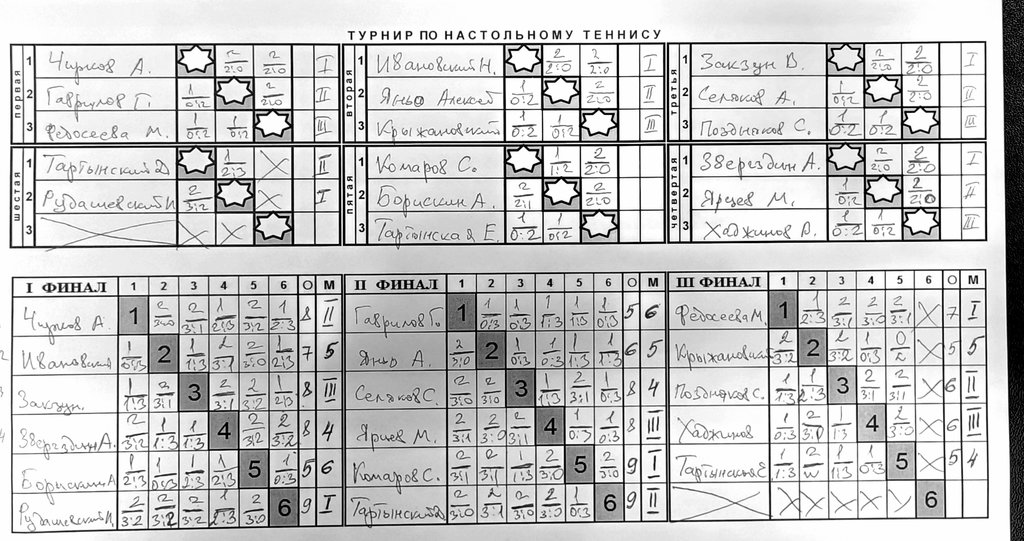 ТУРНИР ПО НАСТОЛЬНОМУ ТЕННИСУ
первая
1 Чирков А. 2 2:0 2 2:0 I
2 Гаврилов Г. 1 0:2 2 2:0 II
3 Федосеева М. 1 0:2 1 0:2 III
вторая
1 Ивановский Н. 2 2:0 2 2:0 I
2 Яньо Алексей 1 0:2 2 2:0 II
3 Крыжановский 1 0:2 1 0:2 III
третья
1 Закзун В. 2 2:0 2 2:0 I
2 Селяков А. 1 0:2 2 2:0 II
3 Поздняков С. 1 0:2 1 0:2 III
шестая
1 Тартынский Д 1 2:3 II
2 Рудашевский И 2 3:2 I
3
пятая
1 Комаров С. 1 1:2 2 2:0
2 Борискин А. 2 2:1 2 2:0
3 Тартынская Е. 1 0:2 1 0:2
четвертая
1 Звергздин А. 2 2:0 2 2:0 I
2 Ярцев М. 1 0:2 2 2:0 II
3 Хаджинов В. 1 0:2 1 0:2 III
I ФИНАЛ 1 2 3 4 5 6 О М
Чирков А. 1 2 3:0 2 3:1 1 2:3 2 3:2 1 2:3 8 II
Ивановский 1 0:3 2 1 1:3 2 3:1 2 3:0 1 2:3 7 5
Закзун. 1 1:3 2 3:1 3 2 3:1 2 3:2 1 2:3 8 III
Звергздин А. 2 3:2 1 1:3 1 1:3 4 2 3:2 2 3:2 8 4
Борискин А 1 2:3 1 0:3 1 2:3 1 2:3 5 1 0:3 5 6
Рудашевский И. 2 3:2 2 3:2 2 3:2 1 2:3 2 3:0 6 9 I
II ФИНАЛ 1 2 3 4 5 6 О М
Гаврилов Г. 1 1 0:3 1 0:3 1 1:3 1 1:3 1 0:3 5 6
Яньо А. 2 3:0 2 1 0:3 1 0:3 1 1:3 1 1:3 6 5
Селяков С. 2 3:0 2 3:0 3 1 1:3 2 3:1 1 0:3 8 4
Ярцев М. 2 3:1 2 3:0 2 3:1 4 1 0:3 1 0:3 8 III
Комаров С. 2 3:1 2 3:1 1 1:3 2 3:0 5 2 3:0 9 I
Тартынский Д 2 3:0 2 3:1 2 3:0 2 3:0 1 0:3 6 9 II
III ФИНАЛ 1 2 3 4 5 6 О М
Федосеева М. 1 1 2:3 2 3:1 2 3:0 2 3:1 7 I
Крыжановский 2 3:2 2 2 3:2 1 0:3 0 5 5
Поздняков С. 1 1:3 1 2:3 3 2 3:1 2 3:1 6 II
Хаджинов 1 0:3 2 3:0 1 1:3 4 2 3:0 6 III
Тартынская Е. 1 1:3 2 w 1 1:3 1 0:3 5 5 4
6